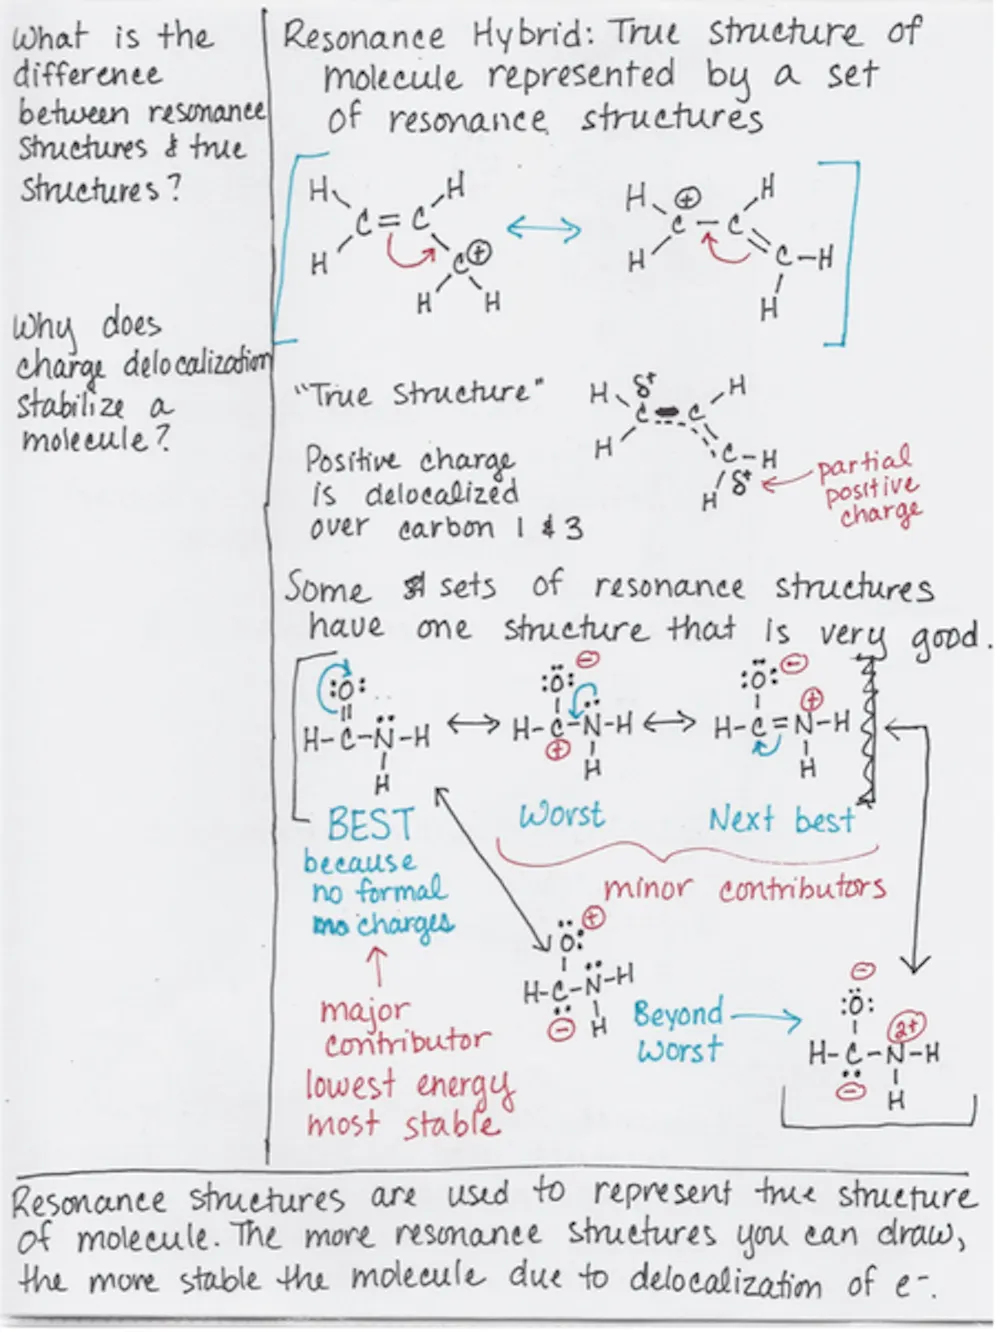 What is the
difference
between resonance
structures & true
structures?
Why does
charge delocalization
stabilize a
molecule?
Resonance Hybrid: True structure of
molecule represented by a set
of resonance structures
H H H ⊕ H
C = C ↔ C - C
H C⊕ H C-H
H H H
"True Structure"
H δ+ H
C C
H C-H
H δ+
partial
positive
charge
Positive charge
is delocalized
over carbon 1 & 3
Some sets of resonance structures
have one structure that is very good.
:O: :Ö: ⊖ :Ö: ⊖
H-C-N̈-H ↔ H-C-N̈-H ↔ H-C=N-H
H ⊕ H ⊕ H
BEST
because
no formal
charges
↑
major
contributor
lowest energy
most stable
Worst
Next best
minor contributors
⊕
O:
H-C-N̈-H
⊖ H
Beyond
Worst
⊖
:Ö:
2+
H-C-N-H
⊖ H
Resonance structures are used to represent true structure
of molecule. The more resonance structures you can draw,
the more stable the molecule due to delocalization of e⁻.